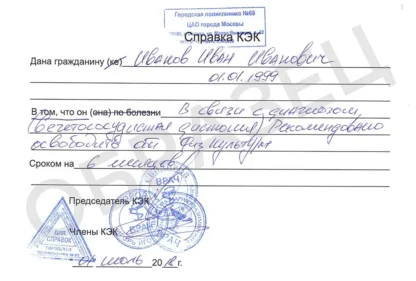 Городская поликлиника №68
ЦАО города Москвы
Справка КЭК
Дана гражданину (ке) Иванов Иван Иванович
01.01.1999
В том, что он (она) по болезни В связи с диагнозом
(Вегетососудистая дистония) Рекомендовано
освободить от физкультуры
Сроком на 6 месяцев
Председатель КЭК
ВРАЧ
Члены КЭК
ВРАЧ
ДЛЯ
СПРАВОК
июль 2018 г.
ОБРАЗЕЦ